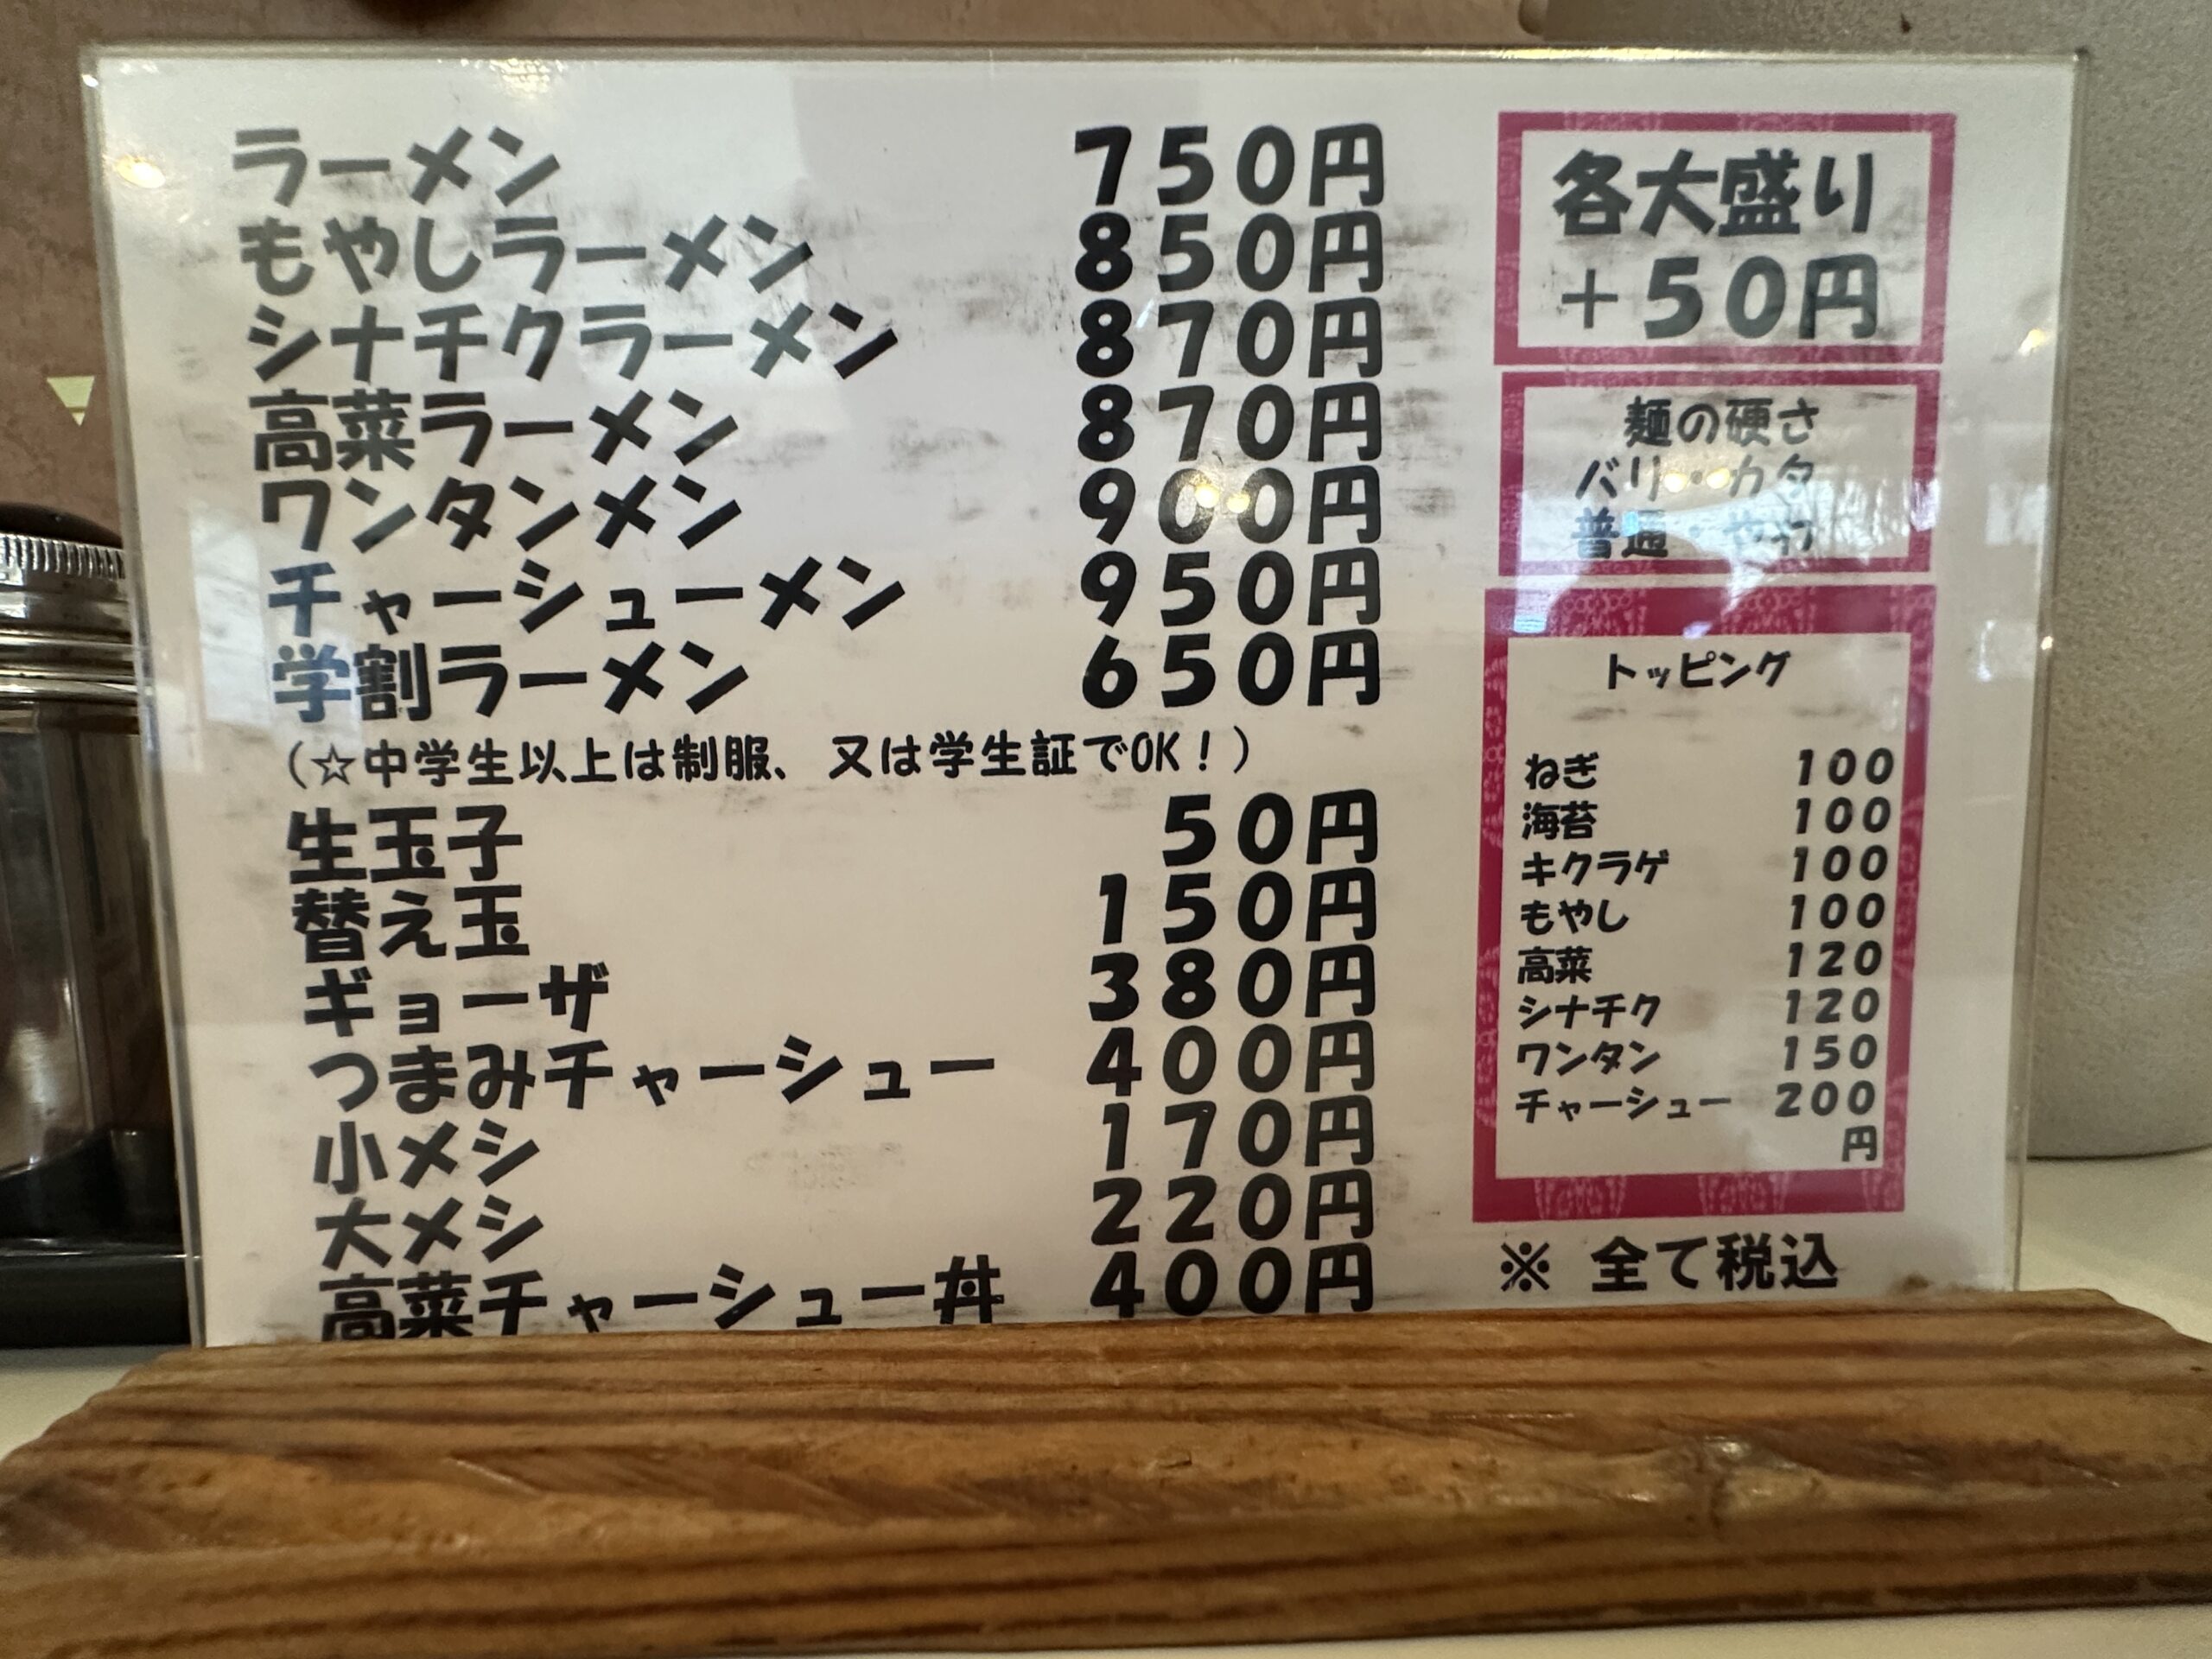 ラーメン 750円
もやしラーメン 850円
シナチクラーメン 870円
高菜ラーメン 870円
ワンタンメン 900円
チャーシューメン 950円
学割ラーメン 650円
(☆中学生以上は制服、又は学生証でOK!)
生玉子 50円
替え玉 150円
ギョーザ 380円
つまみチャーシュー 400円
小メシ 170円
大メシ 220円
高菜チャーシュー丼 400円
各大盛り
+50円
麺の硬さ
バリ・カタ
普通・やわ
トッピング
ねぎ 100
海苔 100
キクラゲ 100
もやし 100
高菜 120
シナチク 120
ワンタン 150
チャーシュー 200
円
※ 全て税込